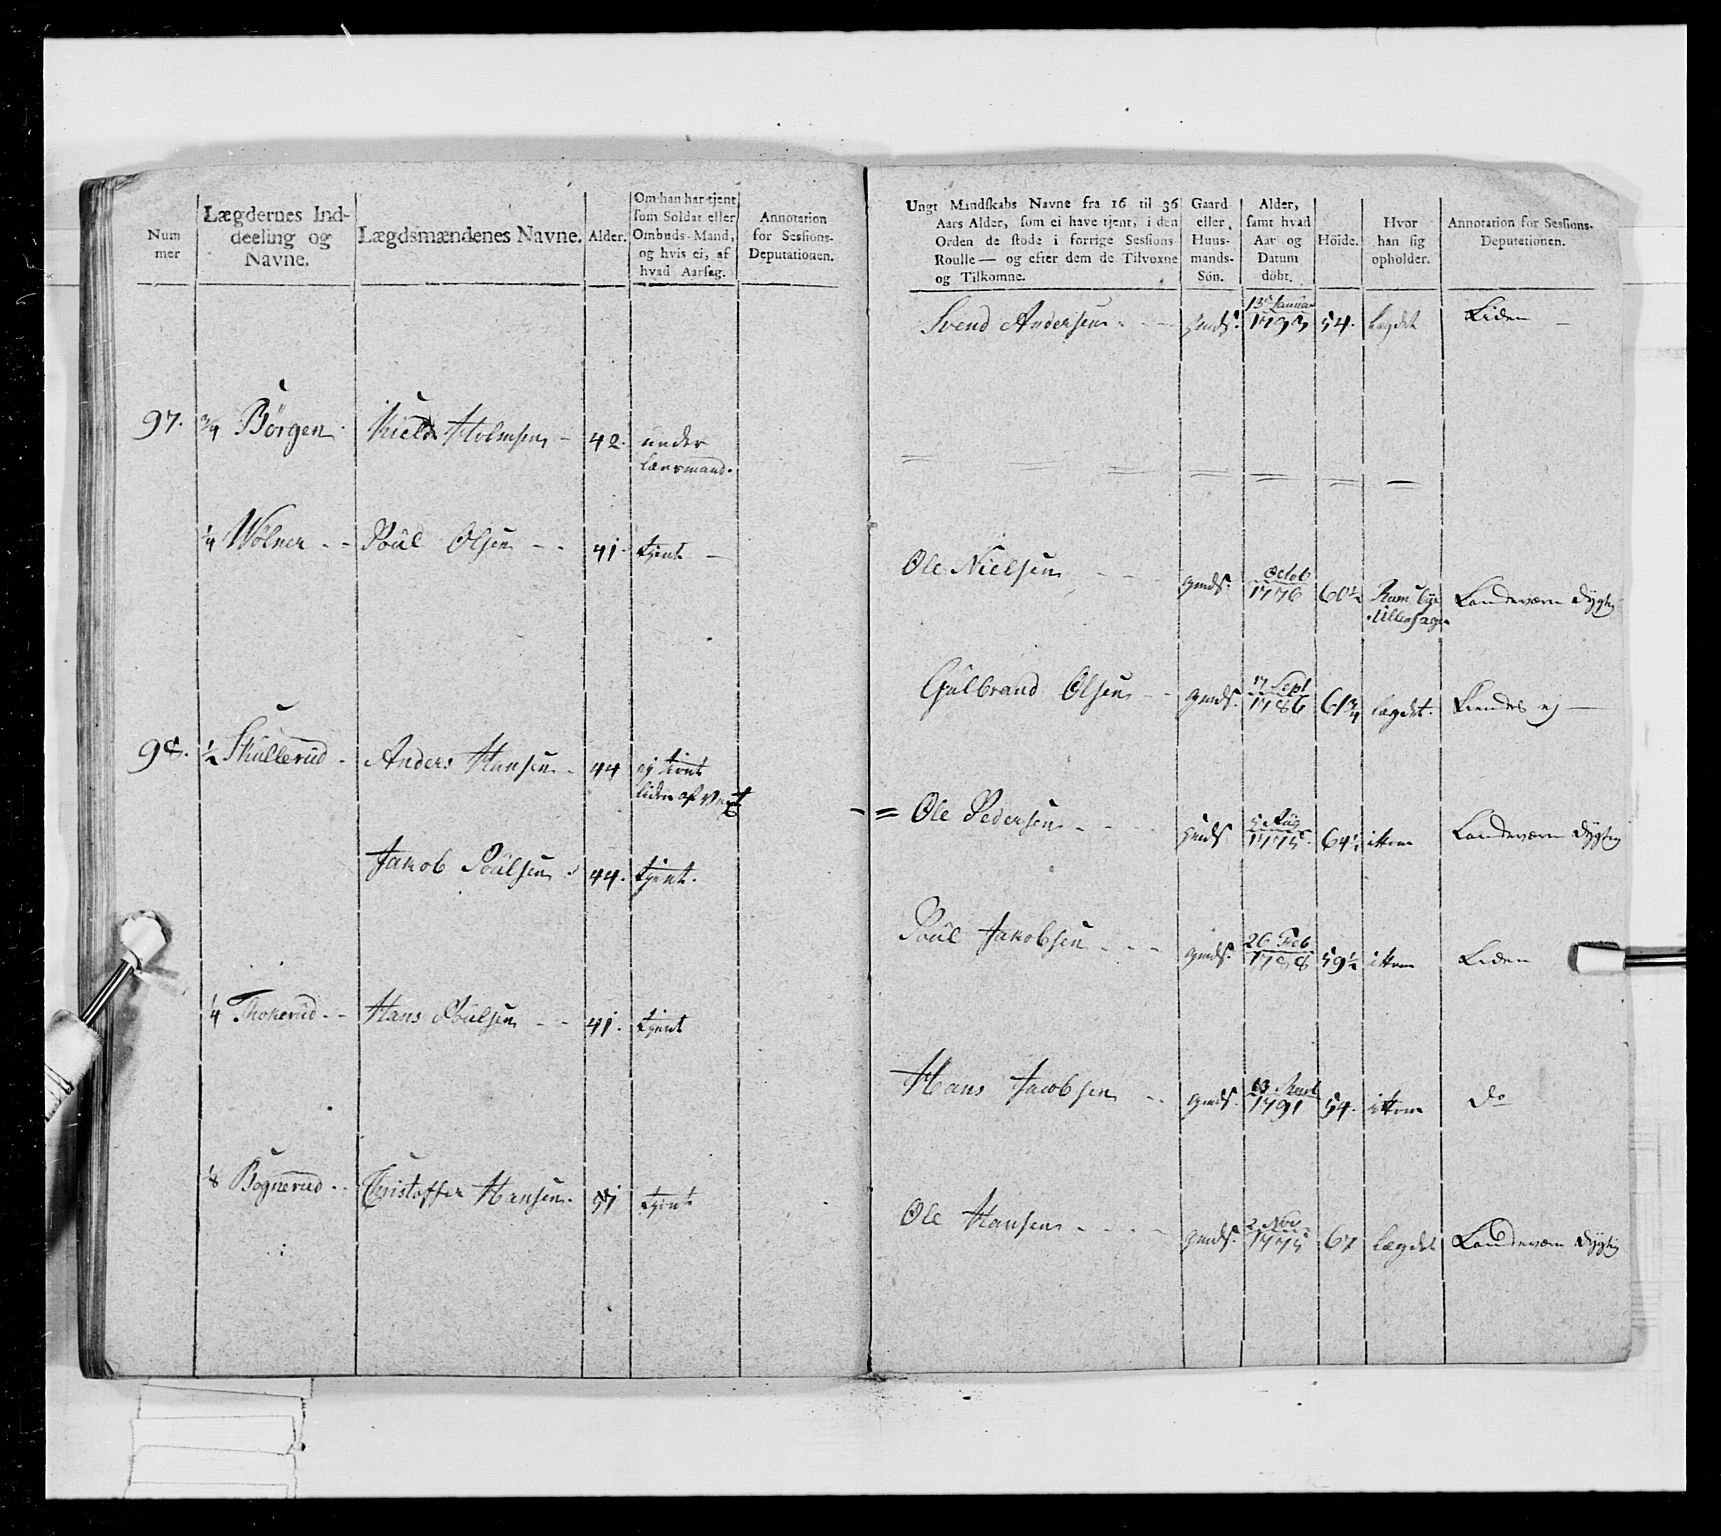 Num
mer
Lægdernes Ind-
deeling og
Navne.
Lægdsmændenes Navne.
Alder.
Om han har tjent
som Soldat eller
Ombuds-Mand,
og hvis ei, af
hvad Aarsag.
Annotation
for Sessions-
Deputationen.
97. 3/4 Børgen Kield Holmsen 42. under
Lænsmand.
1/4 Wølner Poul Olsen 41. tient
98. 1/2 Skullerud Anders Hansen 44 ej tient
liden af Vext
Jakob Poulsen 44. tient.
1/4 Thokerud Hans Poulsen 41. tient
1/8 Bognerud Christoffer Hansen. tient
Ungt Mandskabs Navne fra 16 til 36
Aars Alder, som ei have tjent, i den
Orden de stode i forrige Sessions
Roulle — og efter dem de Tilvoxne
og Tilkomne.
Gaard
eller
Huus-
mands-
Sön.
Alder,
samt hvad
Aar og
Datum
döbt.
Höide.
Hvor
han sig
opholder.
Annotation for Sessions-
Deputationen.
Svend Andersen 13 Januar
1793 54. Lægdet Liden
Ole Nielsen gmds. Octob
1776 60 1/2
Ullensager Landeværn dygtig
Gulbrand Olsen gmds. 17 Sept
1786 61 3/4 lægdet. Kiendes ej
= Ole Pedersen 5 Aug
1775. 64 1/2 ittem Landeværn dygtig
Poul Jakobsen gmds. 26 Feb
1788 59 1/2 ittem Liden
Hans Jacobsen gmds. 13
1791 54. ittem do
Ole Hansen gmds. 2 Nov
1775 67 Lægdet Landeværn dygtig